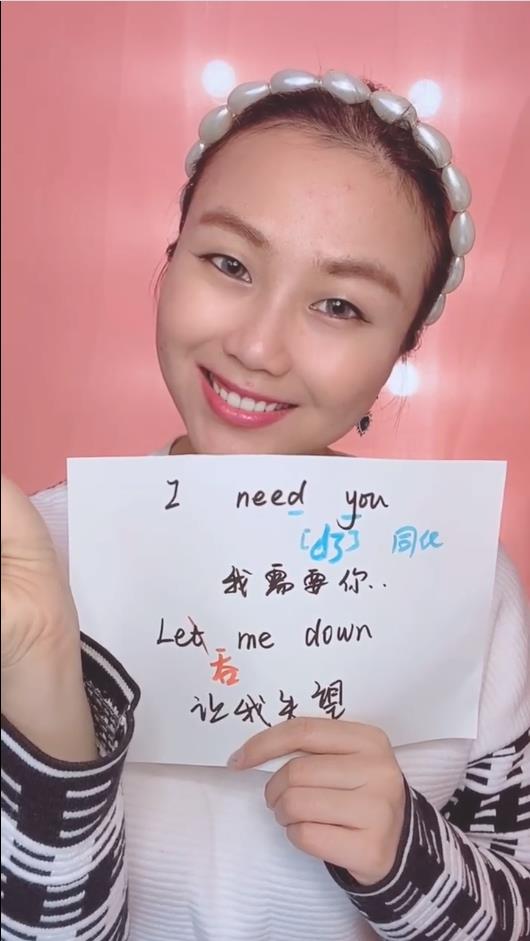 I need you
[dʒ] 同化
我需要你..
Let me down
舌
让我失望